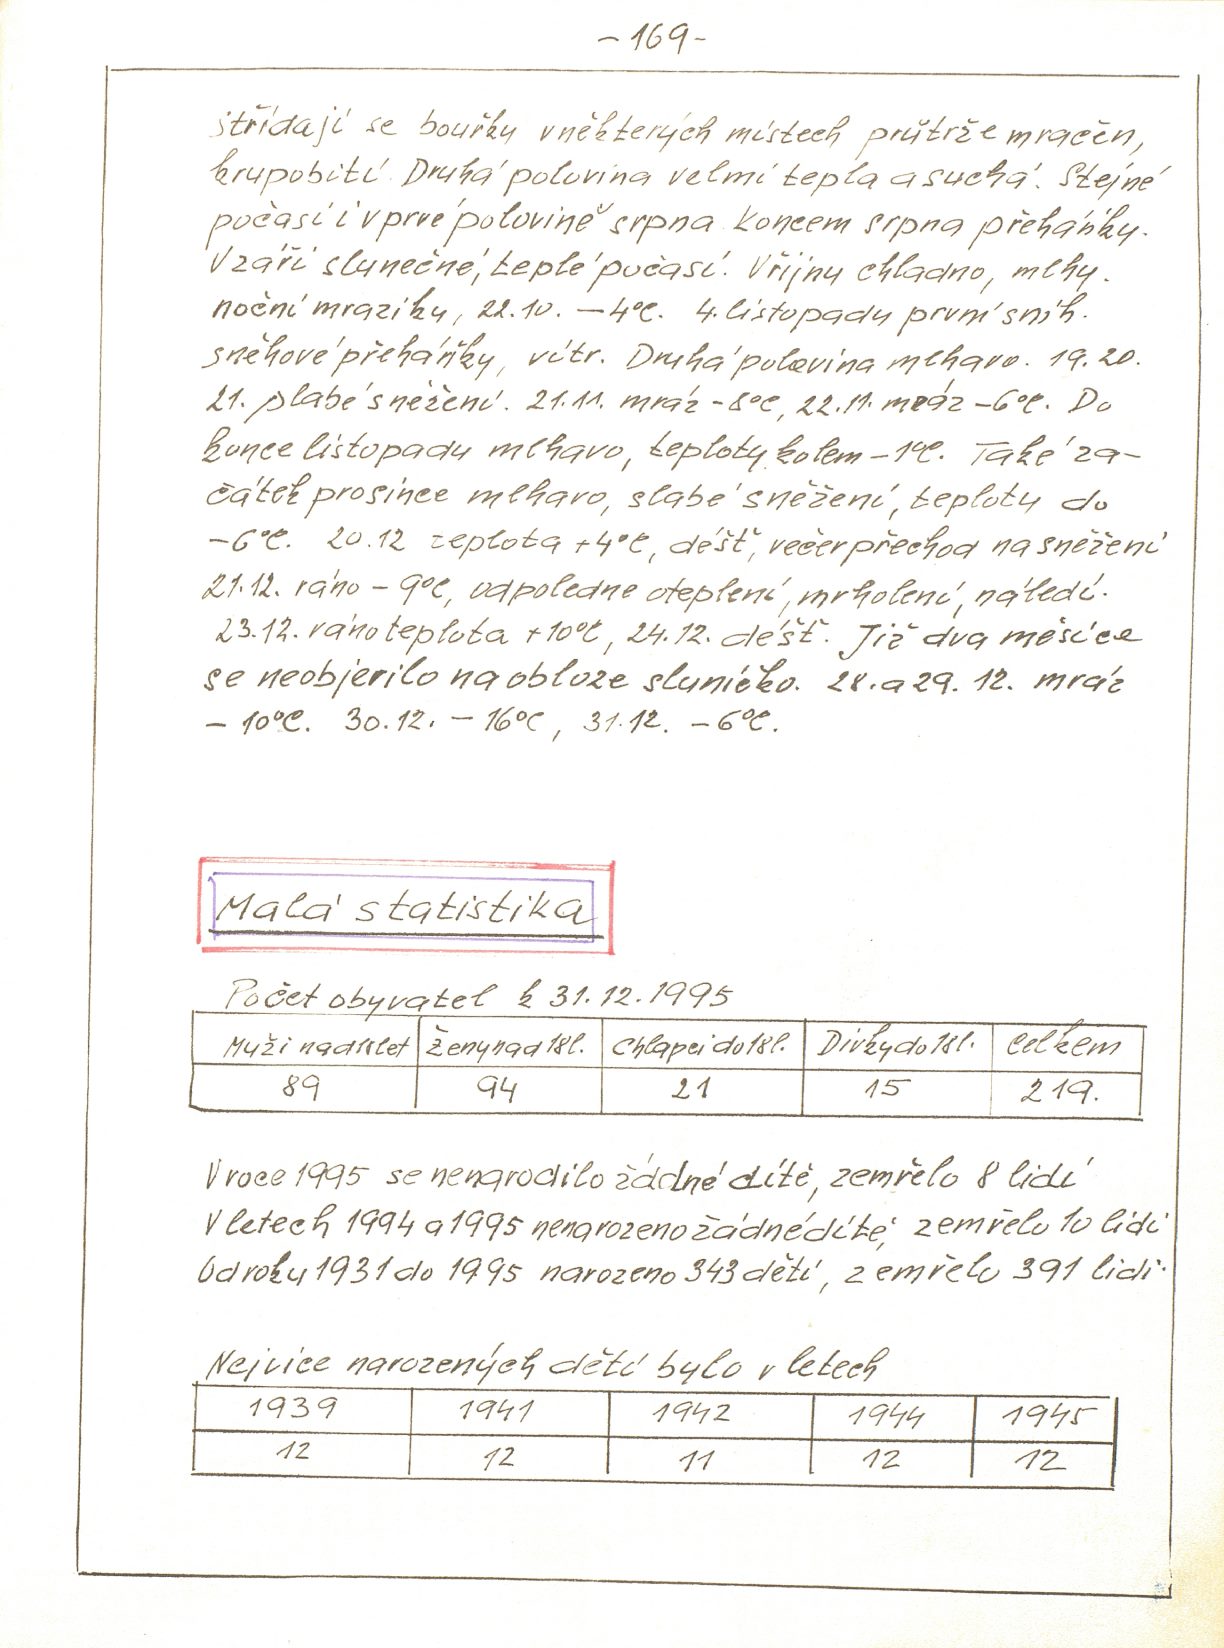 - 169 -
střídají se bouřky v některých místech průtrže mračen,
krupobití. Druhá polovina velmi teplá a suchá. Stejné
počasí i v prvé polovině srpna koncem srpna přeháňky.
V září slunečné, teplé počasí. V říjnu chladno, mlhy.
noční mrazíky, 22.10. -4°C. 4. listopadu první sníh.
sněhové přeháňky, vítr. Druhá polovina mlhavo. 19. 20.
21. slabé sněžení. 21.11. mráz -8°C, 22.11. mráz -6°C. Do
konce listopadu mlhavo, teploty kolem -1°C. Také za-
čátek prosince mlhavo, slabé sněžení, teploty do
-6°C. 20.12 teplota +4°C, déšť, večer přechod na sněžení
21.12. ráno - 9°C, odpoledne oteplení, mrholení, náledí.
23.12. ráno teplota +10°C, 24.12. déšť. Již dva měsíce
se neobjevilo na obloze sluníčko. 28. a 29. 12. mráz
- 10°C. 30.12. - 16°C, 31.12. -6°C.
Malá statistika
Počet obyvatel k 31.12.1995
Muži nad 18 let Ženy nad 18 l. Chlapci do 18 l. Dívky do 18 l. Celkem
89 94 21 15 219.
V roce 1995 se nenarodilo žádné dítě, zemřelo 8 lidí
V letech 1994 a 1995 nenarozeno žádné dítě, zemřelo 10 lidí
Od roku 1931 do 1995 narozeno 343 dětí, zemřelo 391 lidí.
Nejvíce narozených dětí bylo v letech
1939 1941 1942 1944 1945
12 12 11 12 12